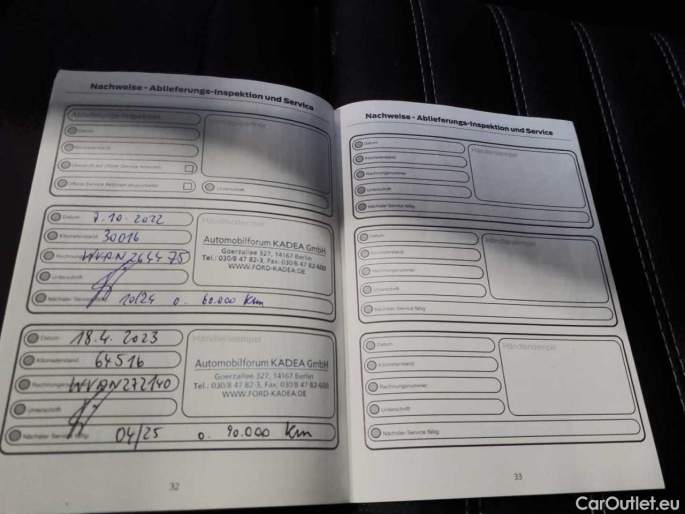 Nachweise - Ablieferungs-Inspektion und Service
Ablieferungs-Inspektion
Datum
Unterschrift
Datum 7.10.2022
Kilometerstand 30016
WVAN264475
Unterschrift
Nächster Service fällig 10/24 o. 60.000 km
Händlerstempel
Automobilforum KADEA GmbH
Goerzallee 327, 14167 Berlin
Tel.: 030/8 47 82-3, Fax: 030/8 47 82-600
WWW.FORD-KADEA.DE
Datum 18.4.2023
Kilometerstand 64516
WVAN272140
Unterschrift
Nächster Service fällig 04/25 o. 90.000 km
Händlerstempel
Automobilforum KADEA GmbH
Goerzallee 327, 14167 Berlin
Tel.: 030/8 47 82-3, Fax: 030/8 47 82-600
WWW.FORD-KADEA.DE
32
Nachweise - Ablieferungs-Inspektion und Service
Datum
Kilometerstand
Rechnungsnummer
Unterschrift
Nächster Service fällig
Händlerstempel
Datum
Kilometerstand
Rechnungsnummer
Unterschrift
Nächster Service fällig
Händlerstempel
Datum
Kilometerstand
Rechnungsnummer
Unterschrift
Nächster Service fällig
Händlerstempel
33
CarOutlet.eu